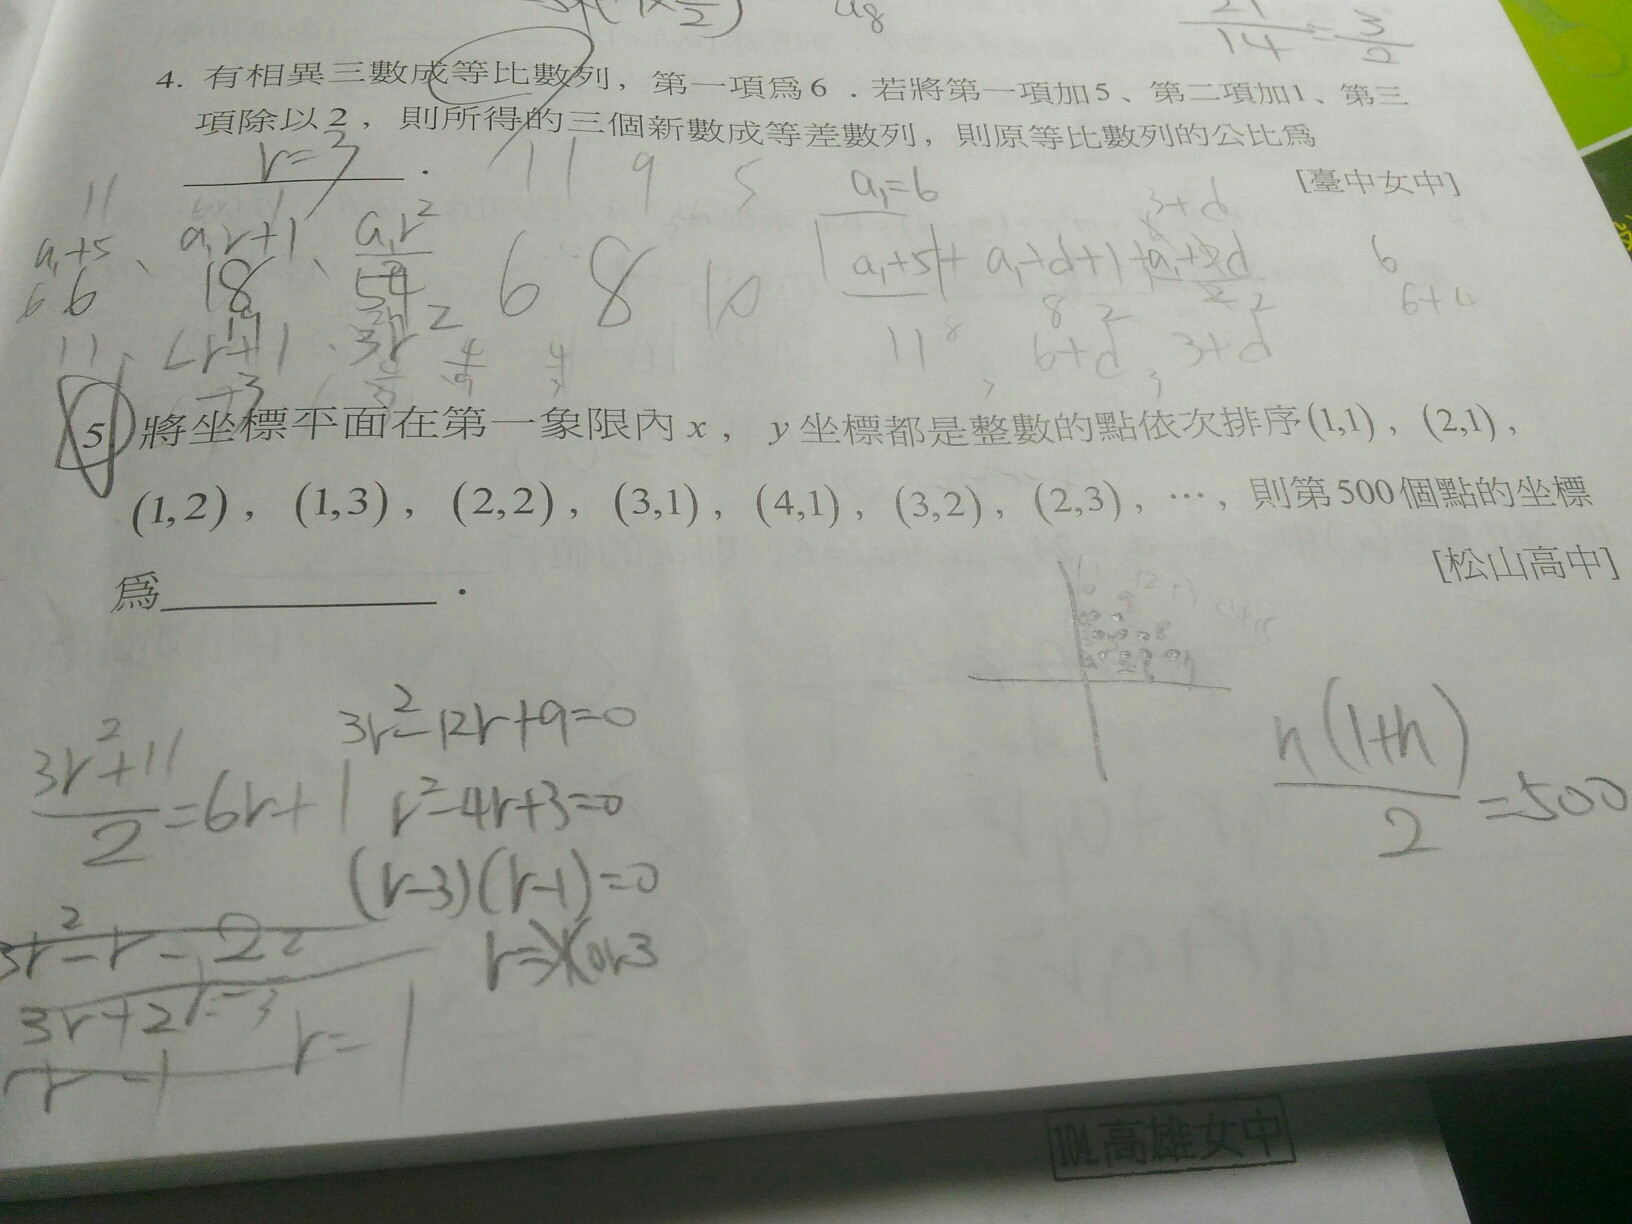 a₈
21/14=3/2
4. 有相異三數成等比數列，第一項為6．若將第一項加5、第二項加1、第三
項除以2，則所得的三個新數成等差數列，則原等比數列的公比為
r=3．
[臺中女中]
11 9 5
a₁=6
3+d
11
a₁+5、a₁r+1、a₁r²/2
6 18 54
6 8 10
a₁+5 + a₁+d+1+
11 6+d 3+d
5 將坐標平面在第一象限內x，y坐標都是整數的點依次排序(1,1)，(2,1)，
(1,2)，(1,3)，(2,2)，(3,1)，(4,1)，(3,2)，(2,3)，…，則第500個點的坐標
為．
[松山高中]
(3r²+11)/2=6r+1
3r²-12r+9=0
r²-4r+3=0
(r-3)(r-1)=0
r=1 or 3
n(1+n)/2=500
r=1
高雄女中